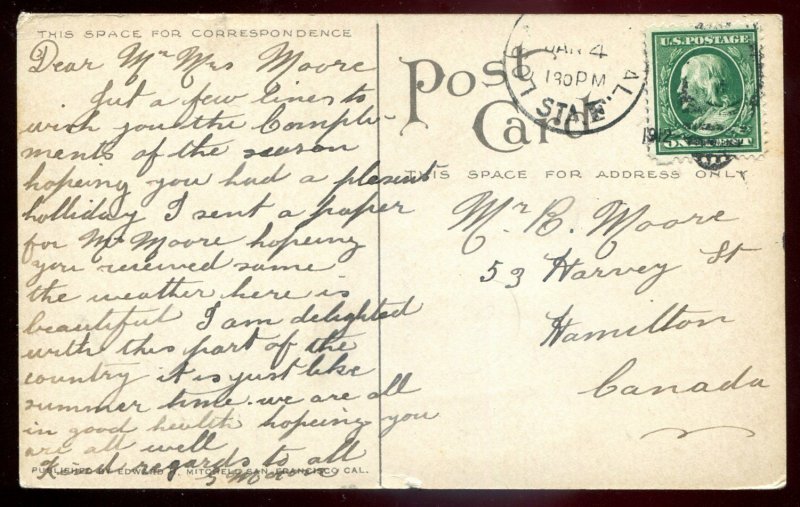 THIS SPACE FOR CORRESPONDENCE
Dear Mr Mrs Moore
Just a few lines to
wish you the Compli-
ments of the season
hopeing you had a plesent
holliday I sent a paper
for Mr Moore hopeing
you received same
the weather here is
beautiful I am delighted
with this part of the
country it is just like
summer time. we are all
in good health hopeing you
are all well
Kind regards to all
PUBLISHED BY EDWARD H. MITCHELL SAN FRANCISCO CAL.
Post
Card
JAN 4
130 PM
STA.
1912
U.S. POSTAGE
ONE CENT
THIS SPACE FOR ADDRESS ONLY
Mr R. Moore
53 Harvey St
Hamilton
Canada